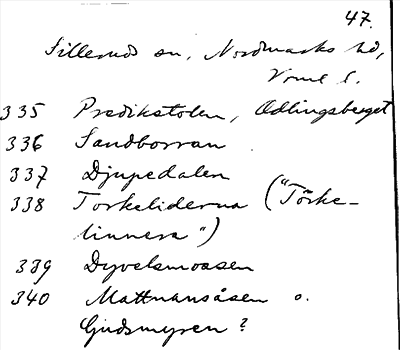 47.
Silleruds sn, Nordmarks hd,
Vrml l.
335 Predikstolen, Ødlingsberget
336 Sandborran
337 Djupedalen
338 Torkeliderna ("Törke-
linnera")
339 Dyvelsmossen
340 Mattmansåsen o.
Gudsmyren?